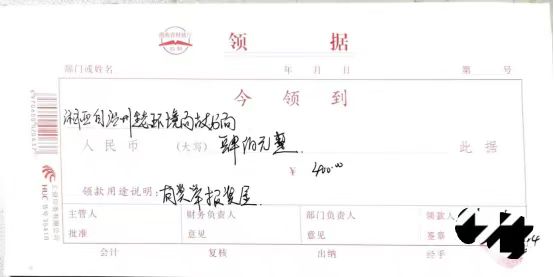 领 据
部门或姓名 年 月 日 第 号
今 领 到
湘西自治州生态环境局
人民币 (大写) 肆佰元整 此据
¥ 400.00
领款用途说明: 有奖举报奖金
主管人 财务负责人 部门负责人 领款人
批准 意见 意见 签章
会计 复核 出纳 经手